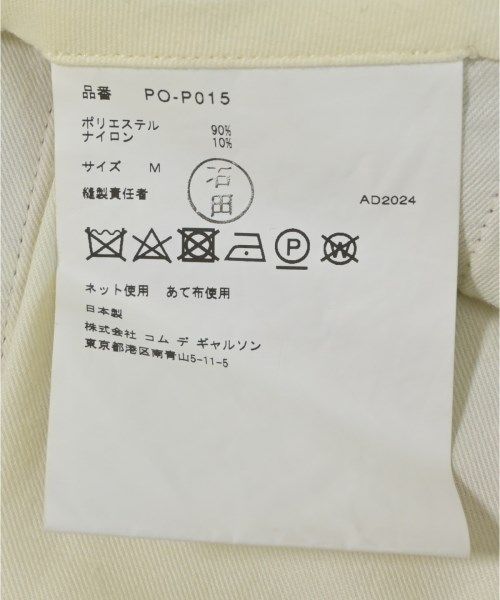 品番 PO-P015
ポリエステル 90%
ナイロン 10%
サイズ M
沼田
縫製責任者 AD2024
P
W
ネット使用 あて布使用
日本製
株式会社 コム デ ギャルソン
東京都港区南青山5-11-5